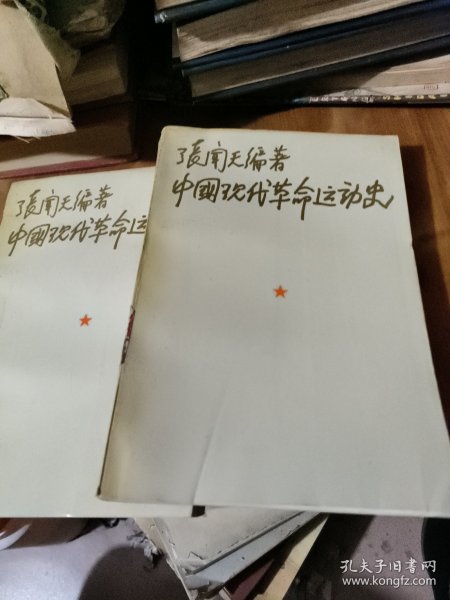 張闻天编著
中國现代革命运动史
張闻天编著
中國现代革命运
孔夫子旧书网
www.kongfz.com